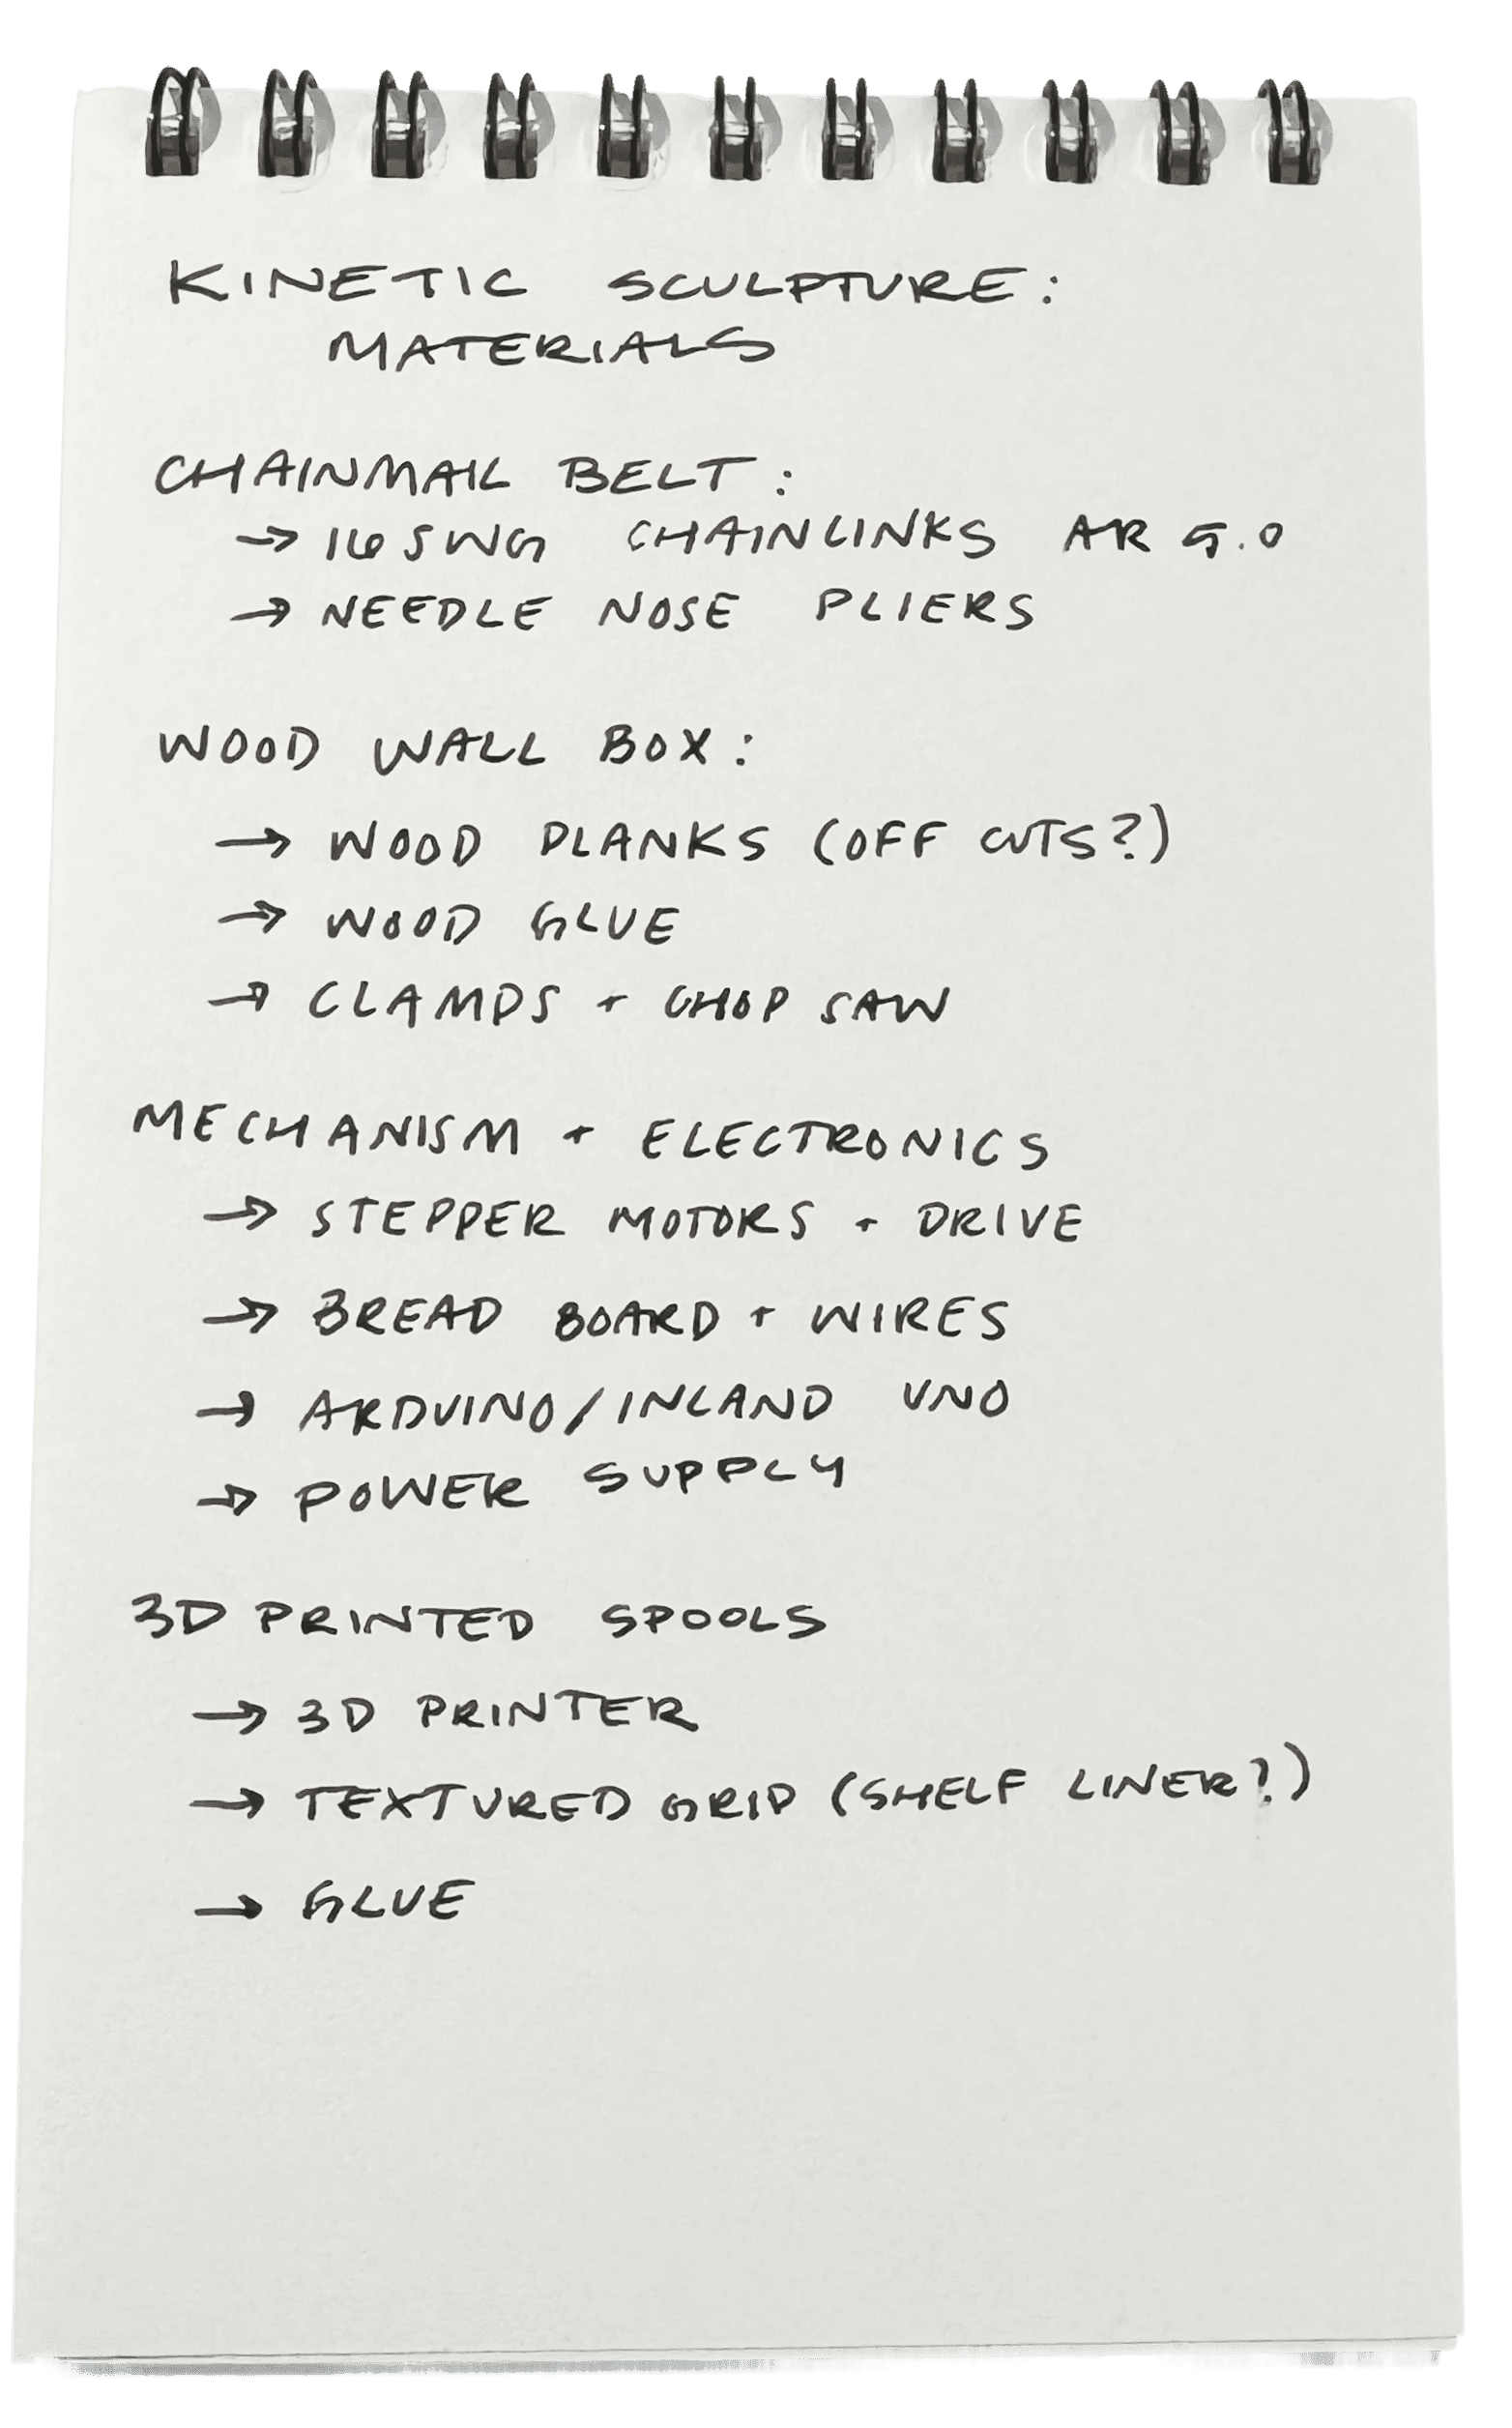 KINETIC SCULPTURE:
MATERIALS
CHAINMAIL BELT:
→ 16 SWG CHAINLINKS AR 5.0
→ NEEDLE NOSE PLIERS
WOOD WALL BOX:
→ WOOD PLANKS (OFF CUTS?)
→ WOOD GLUE
→ CLAMPS + CHOP SAW
MECHANISM + ELECTRONICS
→ STEPPER MOTORS + DRIVE
→ BREAD BOARD + WIRES
→ ARDUINO/INLAND UNO
→ POWER SUPPLY
3D PRINTED SPOOLS
→ 3D PRINTER
→ TEXTURED GRIP (SHELF LINER?)
→ GLUE